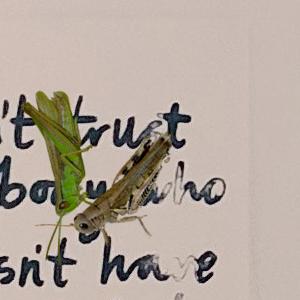 't trust
body who
sn't have